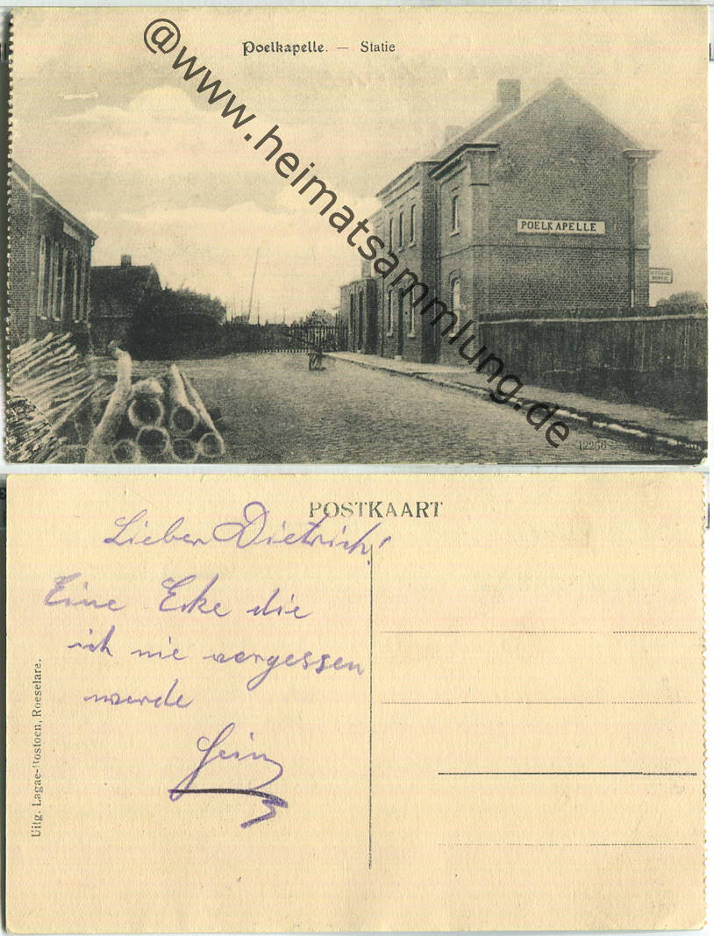 Poelkapelle. — Statie
@www.heimatsammlung.de
POELKAPELLE
12256
POSTKAART
Lieber Dietrich!
Eine Ecke die
ich nie vergessen
werde
Heinz
Uitg. Lagae-Rostoen, Roeselare.